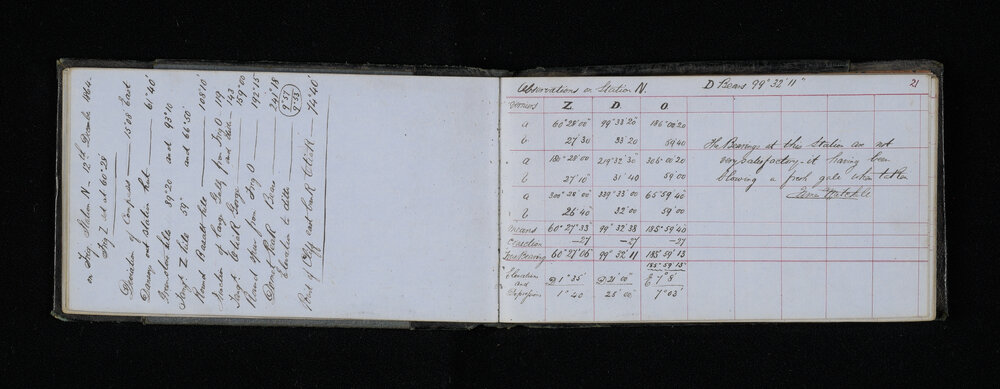 on Trig Station N - 12th December 1864.
Trig Z set at 60° 28'
Deviation of Compass — 15° 00' East
Dansey out station hut — 61° 40'
Junction hills 89° 20' and 93° 10'
59' and 66° 50'
Round Basalt hill — 105° 10'
Junction of large Gully from Trig O 119
and 143
Clark George 159° 00'
Round spur from Trig O — 192° 15'
241° 18
Elevation to ditto
Foot of Cliff east bank — 74° 40'
Observations on Station N. D Bears 99° 32' 11" 21
Verniers Z D O
a 60° 28' 00" 99° 33' 20" 186° 00' 20
b 27' 30 33' 20 59 40
a 180° 28' 00 219° 32' 30" 306° 00' 20
b 27' 10 31' 40 59' 00
a 300° 28' 00 339° 33' 00 65° 59' 40
b 26' 40 32' 00 59' 00
Means 60° 27' 33" 99° 32' 38 185° 59' 40
Correction —27 —27 —27
True Bearing 60° 27' 06" 99° 32' 11 185° 59' 13
185° 59' 13"
Elevation
and D 1° 35' D 21' 00" E 7° 8'
Depressions 1° 40 25' 00 7° 03'
The Bearings at this Station are not
very satisfactory - it having been
blowing a fresh gale when taken